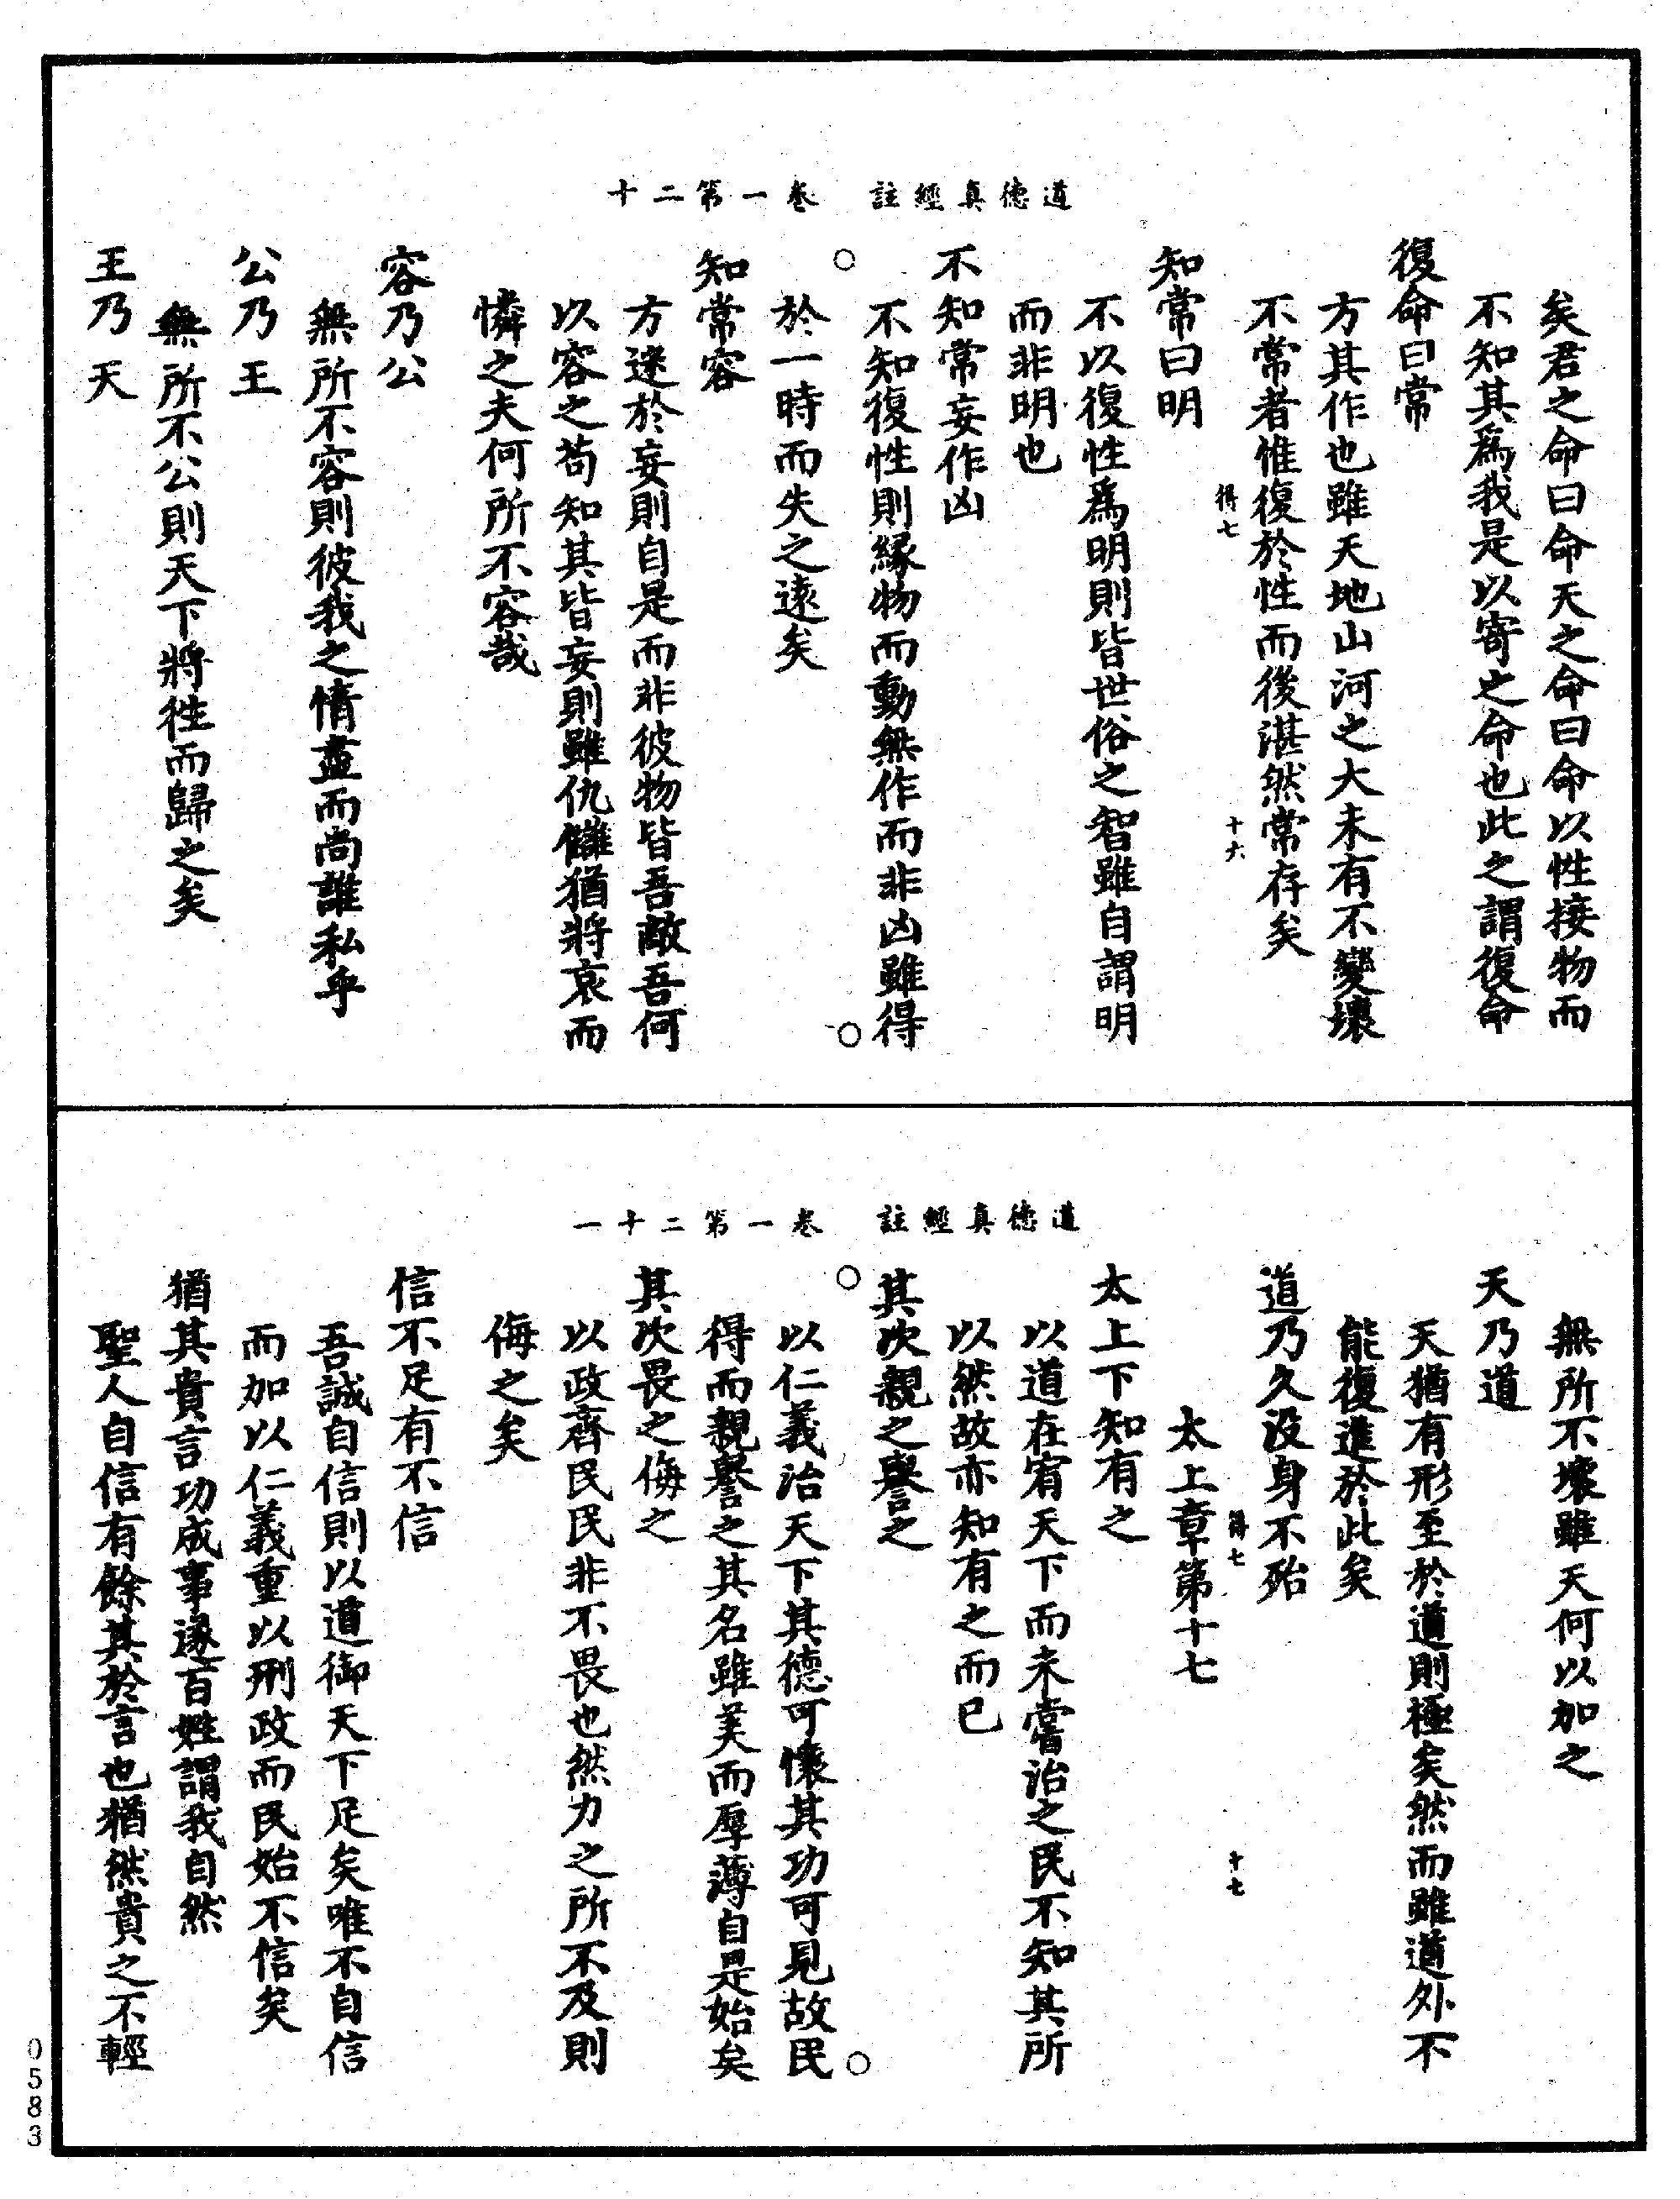 道德真經註　卷一第二十
矣君之命曰命天之命曰命以性接物而
不知其爲我是以寄之命也此之謂復命
復命曰常
方其作也雖天地山河之大未有不變壞
不常者惟復於性而後湛然常存矣
得七　十六
知常曰明
不以復性爲明則皆世俗之智雖自謂明
而非明也
不知常妄作凶
不知復性則緣物而動無作而非凶雖得
於一時而失之遠矣
知常容
方迷於妄則自是而非彼物皆吾敵吾何
以容之苟知其皆妄則雖仇讎猶將哀而
憐之夫何所不容哉
容乃公
無所不容則彼我之情盡而尚誰私乎
公乃王
無所不公則天下將往而歸之矣
王乃天
道德真經註　卷一第二十一
無所不壞雖天何以加之
天乃道
天猶有形至於道則極矣然而雖道外不
能復進於此矣
道乃久没身不殆
得七　十七
太上章第十七
太上下知有之
以道在宥天下而未嘗治之民不知其所
以然故亦知有之而已
其次親之譽之
以仁義治天下其德可懷其功可見故民
得而親譽之其名雖美而厚薄自是始矣
其次畏之侮之
以政齊民民非不畏也然力之所不及則
侮之矣
信不足有不信
吾誠自信則以道御天下足矣唯不自信
而加以仁義重以刑政而民始不信矣
猶其貴言功成事遂百姓謂我自然
聖人自信有餘其於言也猶然貴之不輕
0583